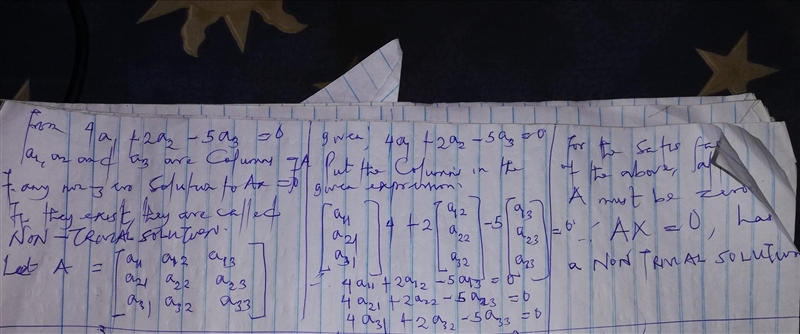 from 4a₁ + 2a₂ - 5a₃ = 0
a₁, a₂ and a₃ are Columns of A
any non-zero Solution to Ax = 0
If they exist, they are called
NON-TRIVIAL SOLUTION.
Let A = [a₁₁ a₁₂ a₁₃
a₂₁ a₂₂ a₂₃
a₃₁ a₃₂ a₃₃]
given, 4a₁ + 2a₂ - 5a₃ = 0
Put the Columns in the
given expression.
[a₁₁ a₂₁ a₃₁] 4 + 2 [a₁₂ a₂₂ a₃₂] - 5 [a₁₃ a₂₃ a₃₃] = 0
4a₁₁ + 2a₁₂ - 5a₁₃ = 0
4a₂₁ + 2a₂₂ - 5a₂₃ = 0
4a₃₁ + 2a₃₂ - 5a₃₃ = 0
For the Satis
of the above,
A must be zero
∴ AX = 0, has
a NON TRIVAL SOLUTION